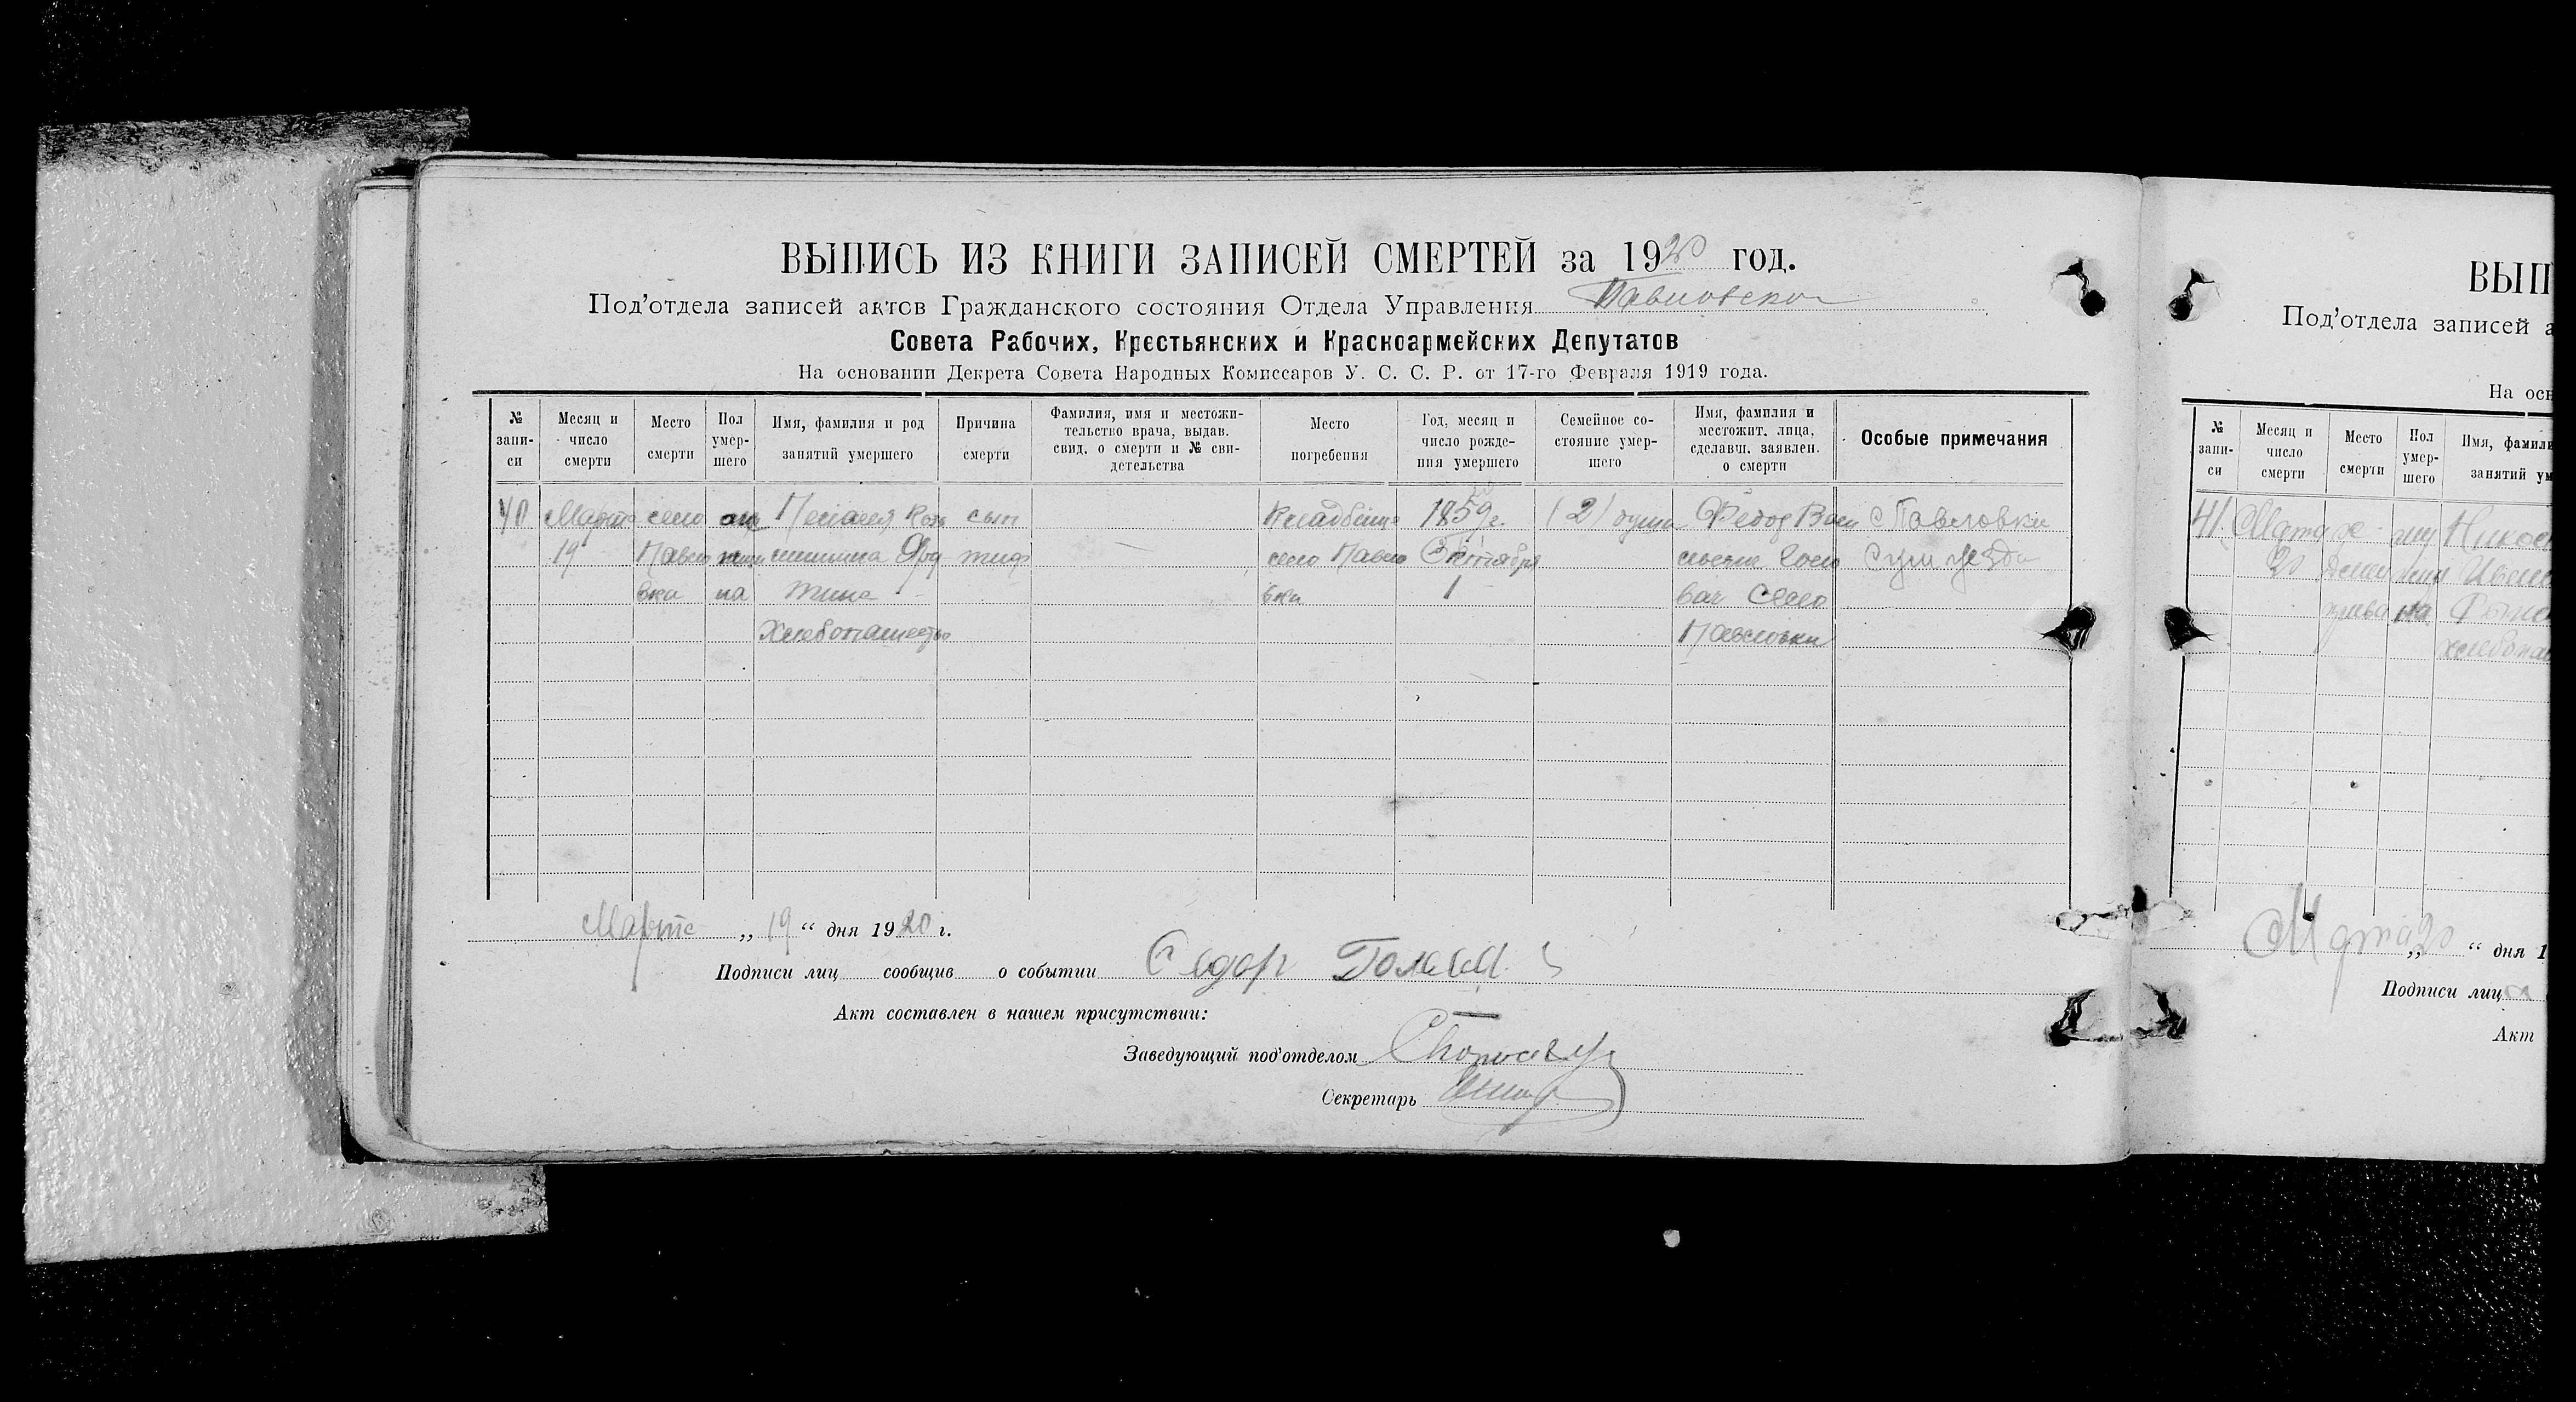 ВЫПИСЬ ИЗ КНИГИ ЗАПИСЕЙ СМЕРТЕЙ за 1920 год.
Под'отдела записей актов Гражданского состояния Отдела Управления Павловско
Совета Рабочих, Крестьянских и Красноармейских Депутатов
На основании Декрета Совета Народных Комиссаров У. С. С. Р. от 17-го Февраля 1919 года.
№ запи-
си
Месяц и
число
смерти
Место
смерти
Пол
умер-
шего
Имя, фамилия и род
занятий умершего
Причина
смерти
Фамилия, имя и местожи-
тельство врача, выдав.
свид. о смерти и № сви-
детельства
Место
погребения
Год, месяц и
число рожде-
ния умершего
Семейное со-
стояние умер-
шего
Имя, фамилия и
местожит. лица,
сделавш. заявлен.
о смерти
Особые примечания
40
Март
19
село
Павло
вка
на
Хлебопашество
сып
тиф
Кладбище
село Павло
вки
1859г.
Октября
1
(2) души
Федор Васи
Село
Павловки
с Павловки
Сум уезда
Марта „ 19 “ дня 1920 г.
Подписи лиц сообщив о событии
Акт составлен в нашем присутствии:
Заведующий под'отделом
Секретарь
ВЫП
Под'отдела записей а
На осн
№
запи-
си
Месяц и
число
смерти
Место
смерти
Пол
умер-
шего
Имя, фамили
занятий ум
41
Марта
20
на
Марта „ 20 “ дня 1
Подписи лиц
Акт